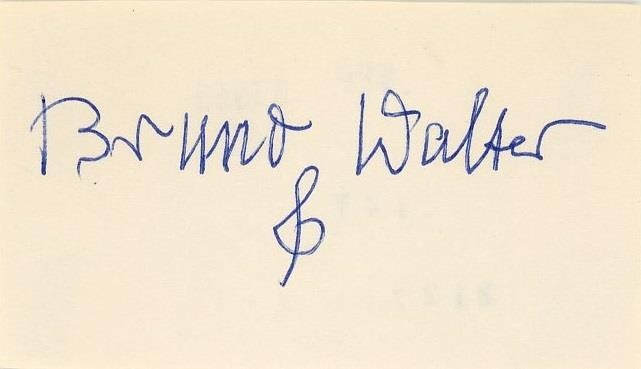 Bruno Walter